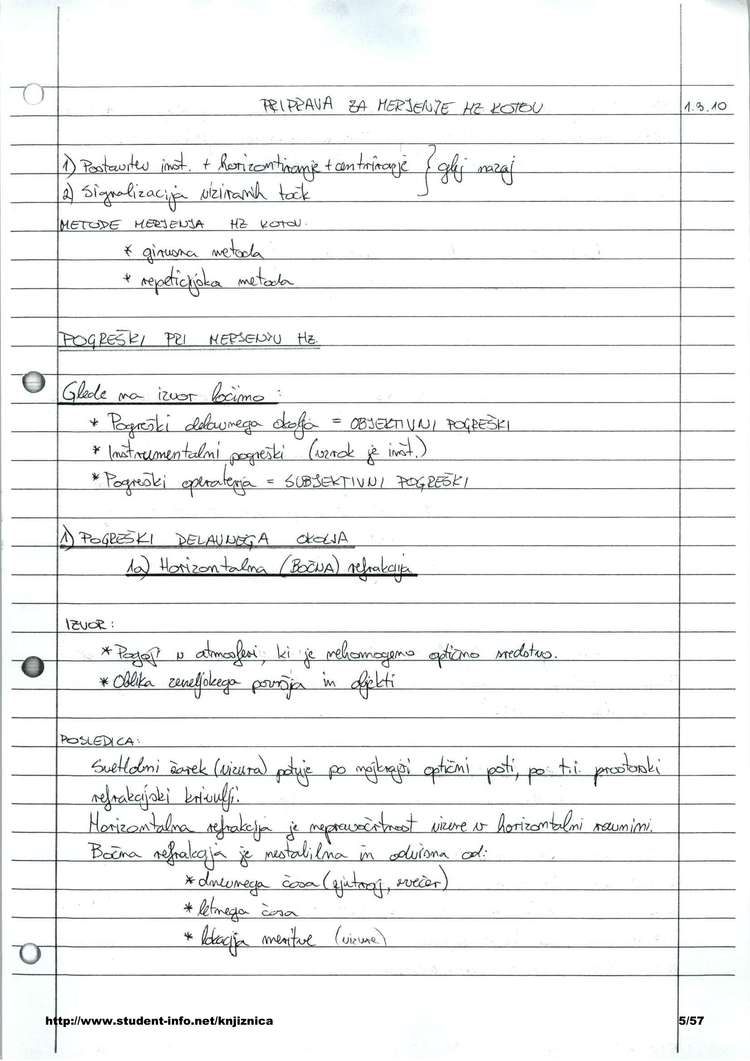 PRIPRAVA ZA MERJENJE HZ KOTOV
1.3.10
1) Postavitev inst. + horizontiranje + centriranje } glej nazaj
2) Signalizacija viziranih točk
METODE MERJENJA HZ KOTOV.
* girusna metoda
* repeticijska metoda
POGREŠKI PRI MERJENJU HZ.
Glede na izvor ločimo :
* Pogreški delavnega okolja = OBJEKTIVNI POGREŠKI
* Instrumentalni pogreški (vzrok je inst.)
* Pogreški operaterja = SUBJEKTIVNI POGREŠKI
1) POGREŠKI DELAVNEGA OKOLJA
1a) Horizontalna (BOČNA) refrakcija
IZVOR :
* Pogoji v atmosferi, ki je nehomogeno optično sredstvo.
* Oblika zemeljskega površja in objekti
POSLEDICA:
Svetlobni žarek (vizura) potuje po najkrajši optični poti, po t.i. prostorski
refrakcijski krivulji.
Horizontalna refrakcija je nepravočrtnost vizure v horizontalni ravnini.
Bočna refrakcija je nestabilna in odvisna od:
* dnevnega časa (zjutraj, zvečer)
* letnega časa
* lokacija meritve (vizure)
http://www.student-info.net/knjiznica
5/57